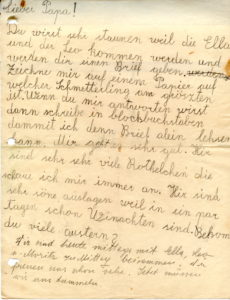 Lieber Papa!
Du wirst sehr staunen weil die Ella
und der Leo kommen werden und
werden dir einen Brief geben,
Zeichne mir auf einem Papier auf
welcher Schmetterling am größten
ist. Wenn du mir antworten wirst
dann schreibe in blochbuchstaben
dammit ich denn Brief alein lehsen
kann. Mir geht es sehr gut. Hir
sind sehr sehr viele Rothelchen die
schaue ich mir immer an. Hir sind
sehr söne auslagen weil in ein par
tagen schon Weinachten sind. Bekom
du viele austern?
Wir sind heute mittag mit Ella, Leo
u. Moritz zu Mittag beisammen. Wir
freuen uns schon sehr. Jetzt müssen
wir uns